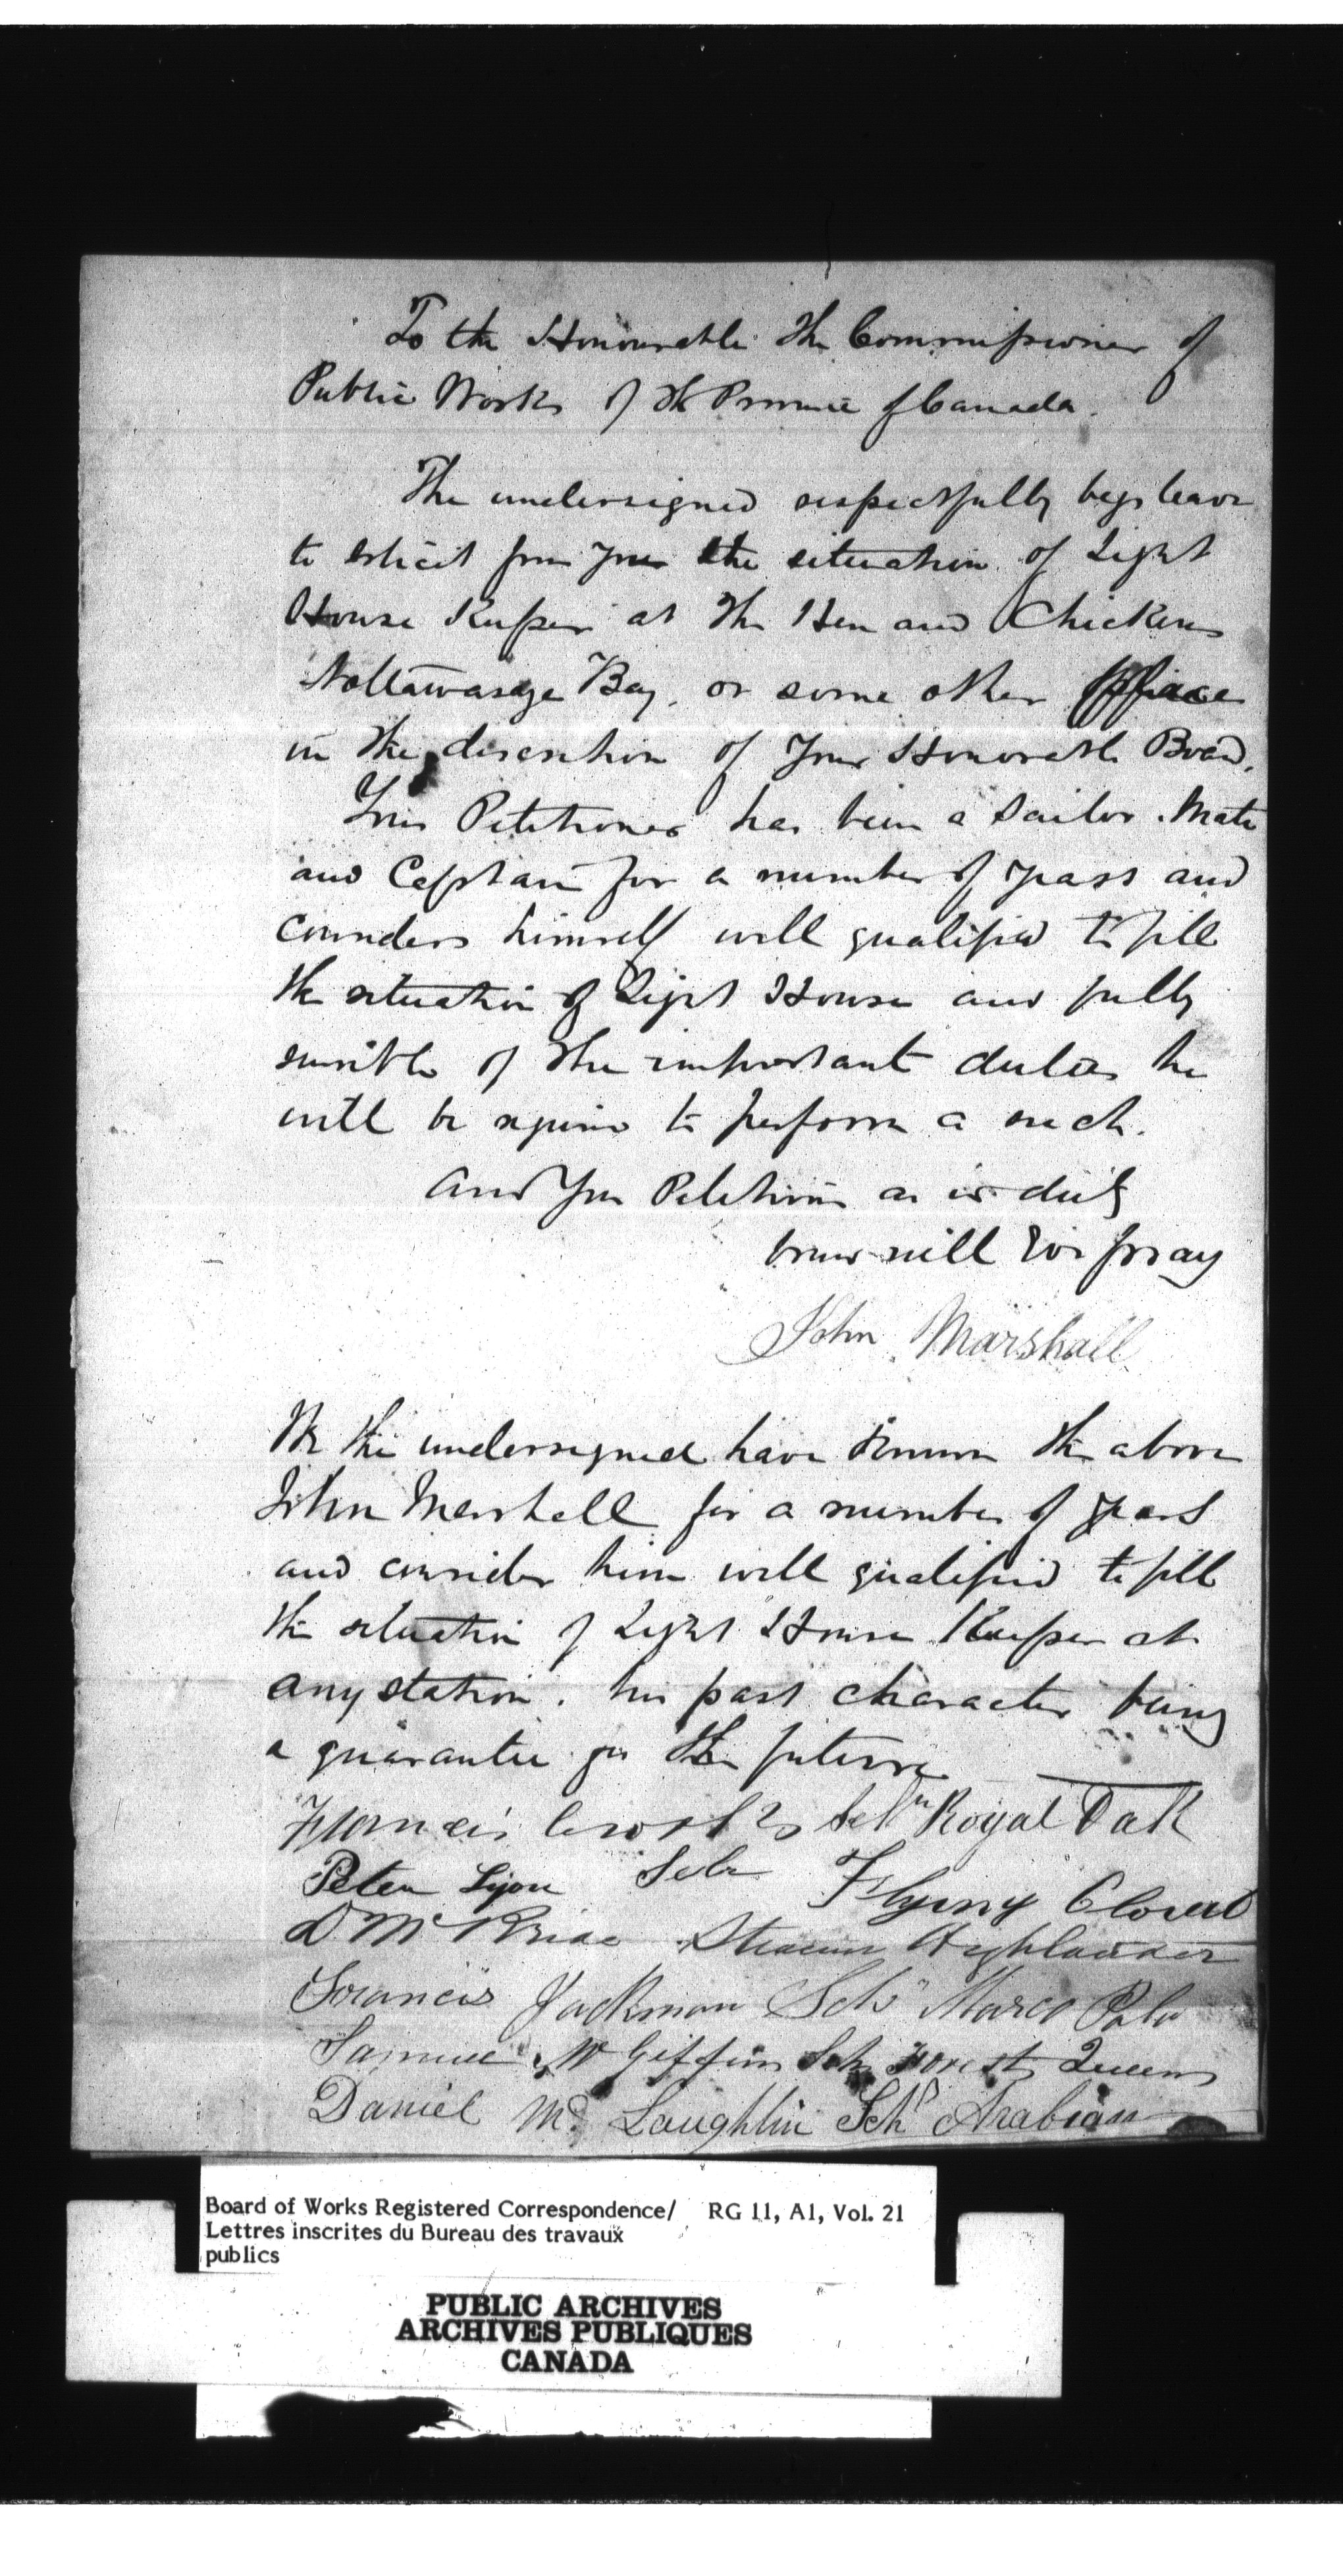 To the Honourable The Commissioner of
Public Works of the Province of Canada.
The undersigned respectfully begs leave
to solicit from you the situation of Light
House Keeper at the Hen and Chickens
Nottawasaga Bay, or some other
in the discretion of your Honorable Board.
Your Petitioner has been a Sailor. Mate
and Captain for a number of years and
considers himself well qualified to fill
the situation of Light House and fully
sensible of the important duties he
will be required to perform as such.
And your Petitioner as in duty
bound will Ever pray
John Marshall
We the undersigned have known the above
John Marshall for a number of years
and consider him well qualified to fill
the situation of Light House Keeper at
any station. his past character being
a guarantee for the future
Francis Schr Royal Oak
Peter Lyon Schr Flying Cloud
D Mc Steamer Highlander
Francis Jackman Schr Marco Polo
Samuel McGiffin Schr Forest Queen
Daniel Mc Laughlin Schr Arabian
Board of Works Registered Correspondence/ RG 11, A1, Vol. 21
Lettres inscrites du Bureau des travaux
publics
PUBLIC ARCHIVES
ARCHIVES PUBLIQUES
CANADA